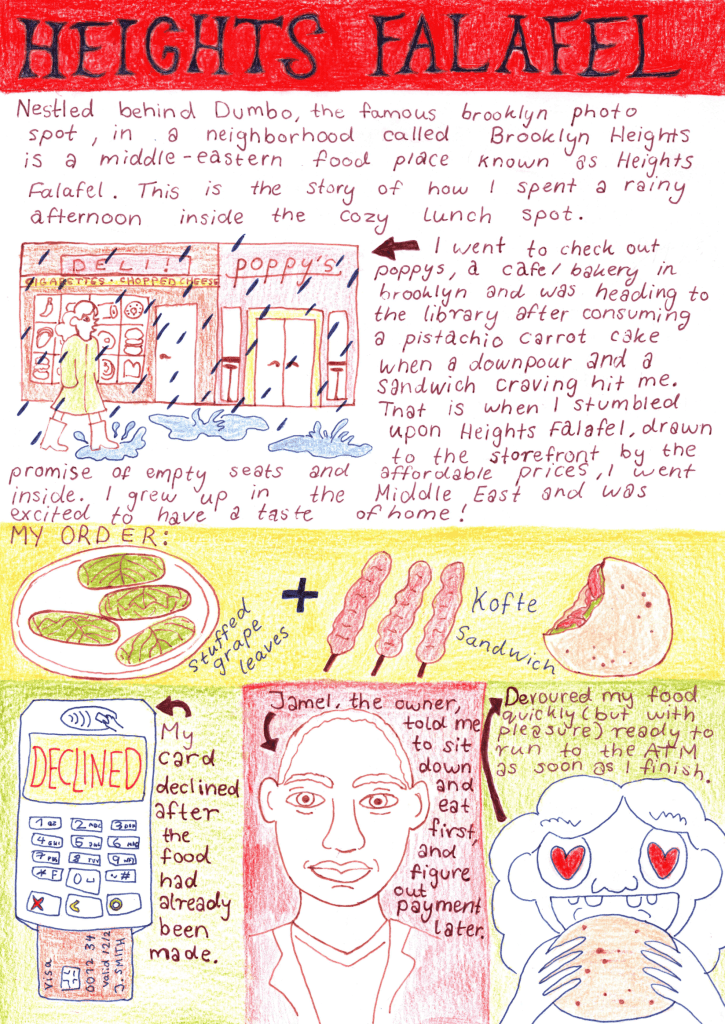 HEIGHTS FALAFEL
Nestled behind Dumbo, the famous brooklyn photo
spot, in a neighborhood called Brooklyn Heights
is a middle-eastern food place known as Heights
Falafel. This is the story of how I spent a rainy
afternoon inside the cozy lunch spot.
DELI!!
CIGARETTES • CHOPPED CHEESE
POPPY'S
I went to check out
poppys, a cafe/bakery in
brooklyn and was heading to
the library after consuming
a pistachio carrot cake
when a downpour and a
sandwich craving hit me.
That is when I stumbled
upon Heights Falafel, drawn
to the storefront by the
promise of empty seats and affordable prices, I went
inside. I grew up in the Middle East and was
excited to have a taste of home!
MY ORDER:
stuffed
grape
leaves
+
Kofte
Sandwich
DECLINED
1
2 ABC
3 DEF
4 GHI
5 JKL
6 MNO
7 PQR
8 TUV
9
* F
0
~ #
X
<
O
Visa
0072 34
Valid 12/2
J. SMITH
My
card
declined
after
the
food
had
already
been
made.
Jamel, the owner,
told me
to sit
down
and
eat
first,
and
figure
out
payment
later.
Devoured my food
quickly (but with
pleasure) ready to
run to the ATM
as soon as I finish.